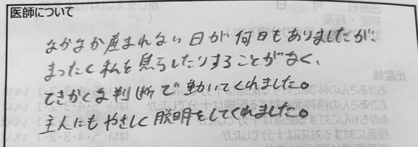 医師について
なかなか産まれない日が何日もありましたが、
まったく私を焦らしたりすることがなく、
てきかくな判断で動いてくれました。
主人にもやさしく説明をしてくれました。